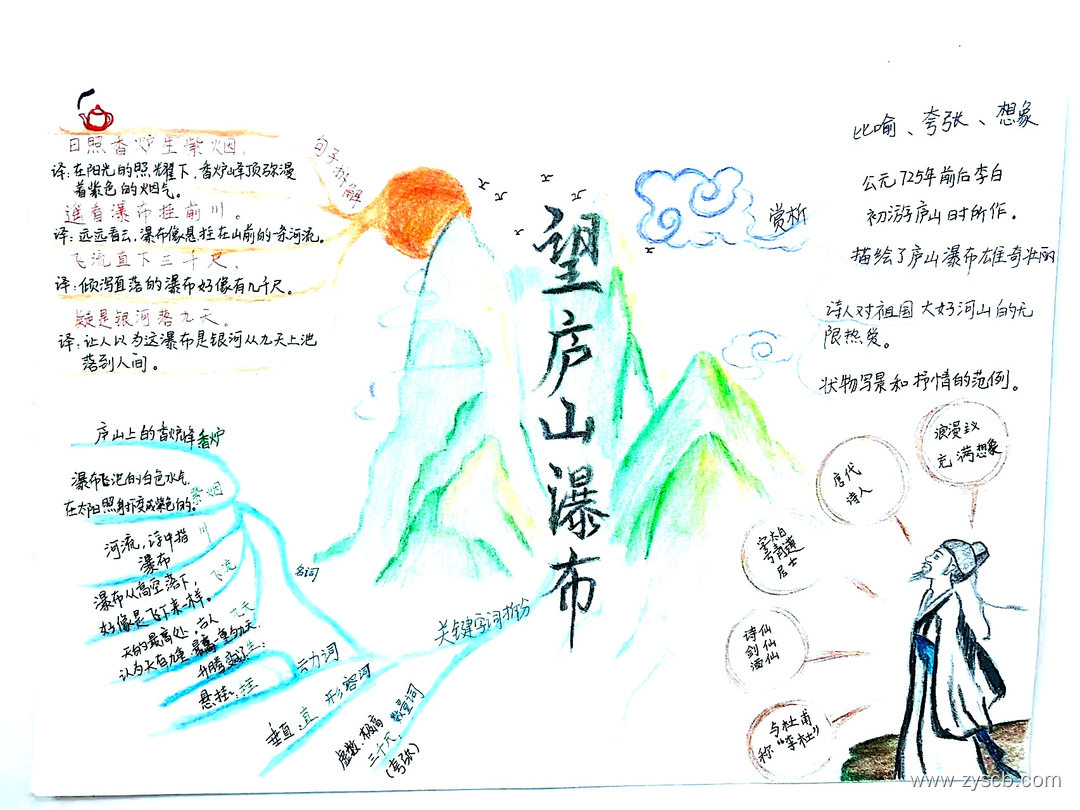 望庐山瀑布
句子拆解
日照香炉生紫烟，
译：在阳光的照耀下，香炉峰顶弥漫
着紫色的烟气。
遥看瀑布挂前川。
译：远远看去，瀑布像悬挂在山前的一条河流。
飞流直下三千尺，
译：倾泻直落的瀑布好像有几千尺。
疑是银河落九天。
译：让人以为这瀑布是银河从九天上泄
落到人间。
赏析
比喻、夸张、想象
公元725年前后李白
初游庐山时所作。
描绘了庐山瀑布雄奇壮丽
诗人对祖国大好河山的无
限热爱。
状物写景和抒情的范例。
关键字词拆分
名词
庐山上的香炉峰 香炉
瀑布飞泄的白色水气，
在太阳照射下变成紫色的。
紫烟
河流，诗中指 川
瀑布
瀑布从高空落下，
好像是飞下来一样。
飞流
天的最高处，古人
认为天有九重，最高一重为九天
动词
悬挂：挂
形容词
垂直：直
数量词
虚数 极高
三千尺，
（夸张）
浪漫主义
充满想象
唐代
诗人
字太白
号青莲
居士
诗仙
剑仙
酒仙
与杜甫
称“李杜”
www.zyscb.com